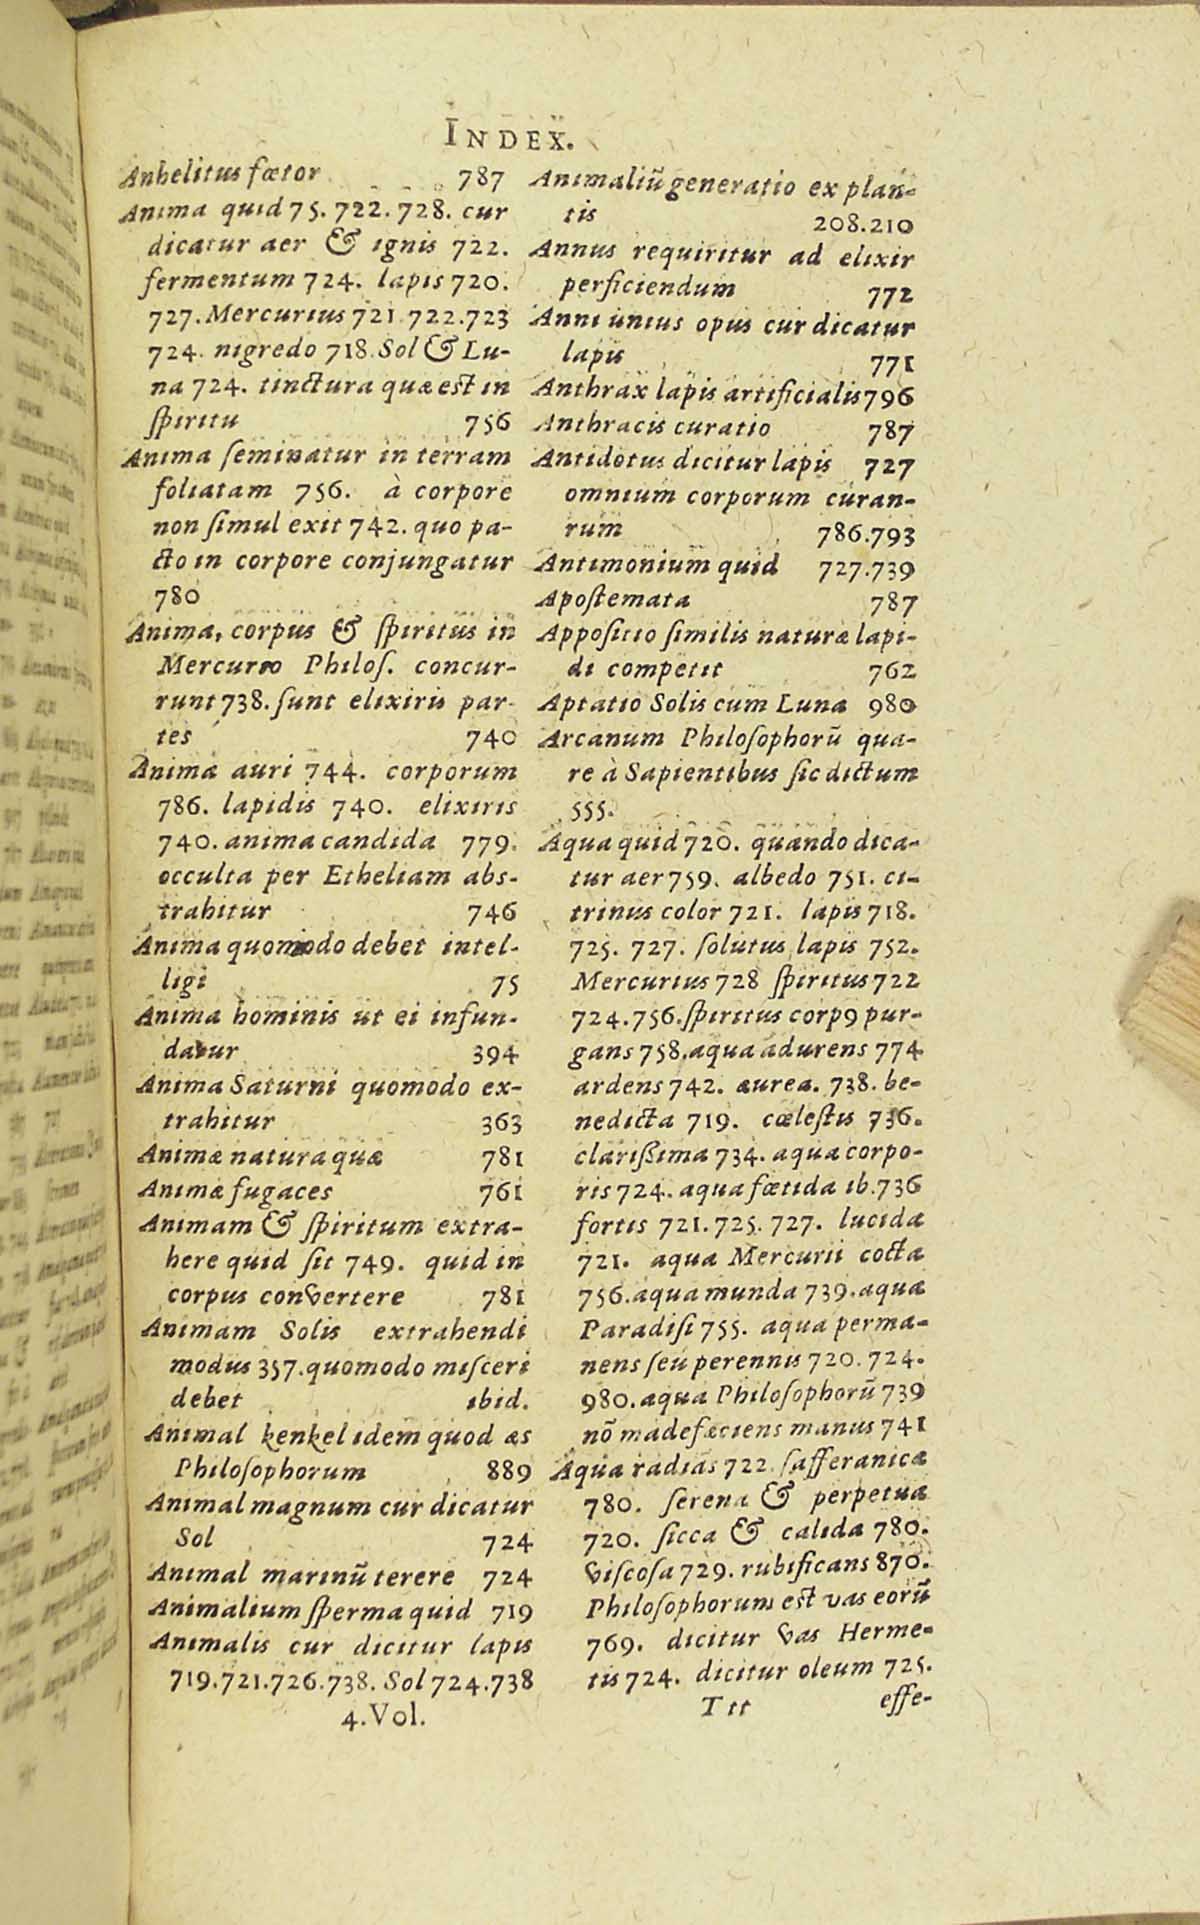 INDEX.
Anhelitus fœtor 787
Anima quid 75. 722. 728. cur
dicatur aer & ignis 722.
fermentum 724. lapis 720.
727. Mercurius 721 722.723
724. nigredo 718. Sol & Lu-
na 724. tinctura quæ est in
spiritu 756
Anima seminatur in terram
foliatam 756. à corpore
non simul exit 742. quo pa-
cto in corpore conjungatur
780
Anima, corpus & spiritus in
Mercurio Philos. concur-
runt 738. sunt elixiris par-
tes 740
Anima auri 744. corporum
786. lapidis 740. elixiris
740. anima candida 779.
occulta per Etheliam abs-
trahitur 746
Anima quomodo debet intel-
ligi 75
Anima hominis ut ei infun-
datur 394
Anima Saturni quomodo ex-
trahitur 363
Animæ natura quæ 781
Animæ fugaces 761
Animam & spiritum extra-
here quid sit 749. quid in
corpus convertere 781
Animam Solis extrahendi
modus 357. quomodo misceri
debet ibid.
Animal kenkel idem quod æs
Philosophorum 889
Animal magnum cur dicatur
Sol 724
Animal marinū terere 724
Animalium sperma quid 719
Animalis cur dicitur lapis
719.721.726.738. Sol 724.738
4. Vol.
Animaliū generatio ex plan-
tis 208.210
Annus requiritur ad elixir
perficiendum 772
Anni unius opus cur dicatur
lapis 771
Anthrax lapis artificialis 796
Anthracis curatio 787
Antidotus dicitur lapis 727
omnium corporum curan-
rum 786.793
Antimonium quid 727.739
Apostemata 787
Appositio similis naturæ lapi-
di competit 762
Aptatio Solis cum Luna 980
Arcanum Philosophorū qua-
re à Sapientibus sic dictum
555.
Aqua quid 720. quando dica-
tur aer 759. albedo 751. ci-
trinus color 721. lapis 718.
725. 727. solutus lapis 752.
Mercurius 728 spiritus 722
724.756. spiritus corpꝰ pur-
gans 758. aqua adurens 774
ardens 742. aurea. 738. be-
nedicta 719. cœlestis 736.
clarißima 734. aqua corpo-
ris 724. aqua fœtida ib. 736
fortis 721. 725. 727. lucida
721. aqua Mercurii cocta
756. aqua munda 739. aqua
Paradisi 755. aqua perma-
nens seu perennis 720. 724.
980. aqua Philosophorū 739
nō madefaciens manus 741
Aqua radias 722. safferanica
780. serena & perpetua
720. sicca & calida 780.
viscosa 729. rubificans 870.
Philosophorum est vas eorū
769. dicitur vas Herme-
tis 724. dicitur oleum 725.
Ttt effe-